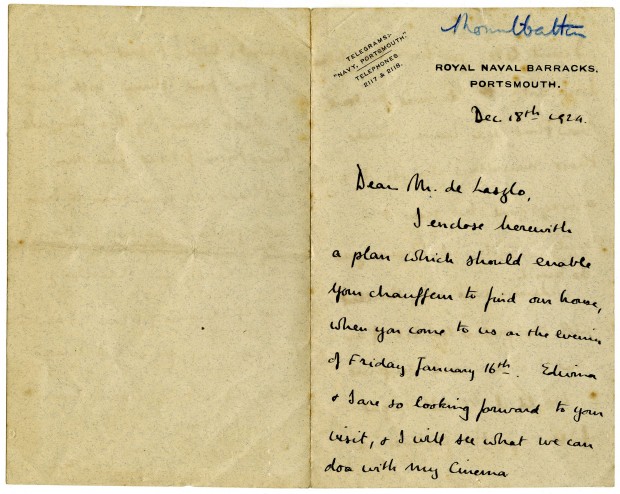 Mountbatten
TELEGRAMS:
"NAVY, PORTSMOUTH."
TELEPHONES
2117 & 2118.
ROYAL NAVAL BARRACKS.
PORTSMOUTH.
Dec 18th 1924.
Dear Mr. de Laszlo,
I enclose herewith
a plan which should enable
your chauffeur to find our house,
when you come to us on the evening
of Friday January 16th. Edwina
& I are so looking forward to your
visit, & I will see what we can
doo with my Cinema